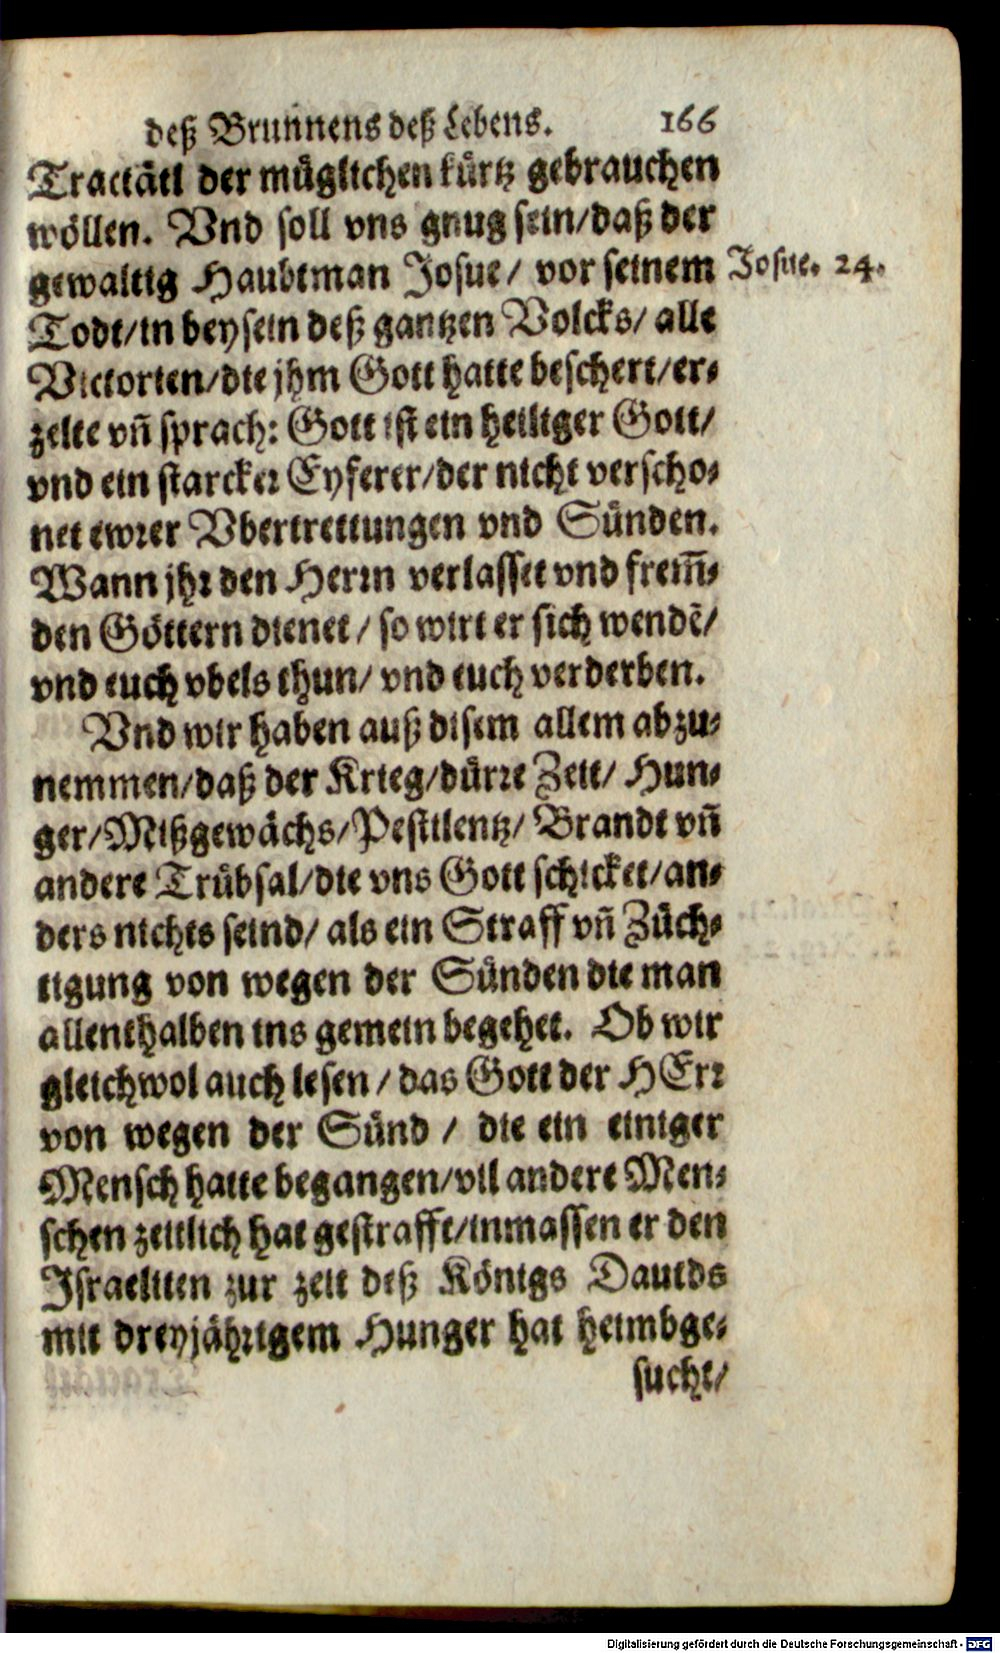 deß Brunnens deß Lebens. 166
Tractätl der müglichen kürtz gebrauchen
wöllen. Vnd soll vns gnug sein/daß der
gewaltig Haubtman Josue/ vor seinem Josue. 24.
Todt/in beysein deß gantzen Volcks/ alle
Victorien/die jhm Gott hatte beschert/er-
zelte vñ sprach: Gott ist ein heiliger Gott/
vnd ein starcker Eyferer/der nicht verscho-
net ewrer Vbertrettungen vnd Sünden.
Wann jhr den Herrn verlasset vnd frem̃-
den Göttern dienet/ so wirt er sich wendẽ/
vnd euch vbels thun/ vnd euch verderben.
Vnd wir haben auß disem allem abzu-
nemmen/daß der Krieg/dürre Zeit/ Hun-
ger/Mißgewächs/Pestilentz/ Brandt vñ
andere Trübsal/die vns Gott schicket/an-
ders nichts seind/ als ein Straff vñ Züch-
tigung von wegen der Sünden die man
allenthalben ins gemein begehet. Ob wir
gleichwol auch lesen/ das Gott der HErr
von wegen der Sünd/ die ein einiger
Mensch hatte begangen/vil andere Men-
schen zeitlich hat gestrafft/inmassen er den
Israeliten zur zeit deß Königs Dauids
mit dreyjährigem Hunger hat heimbge-
sucht/
Digitalisierung gefördert durch die Deutsche Forschungsgemeinschaft - DFG